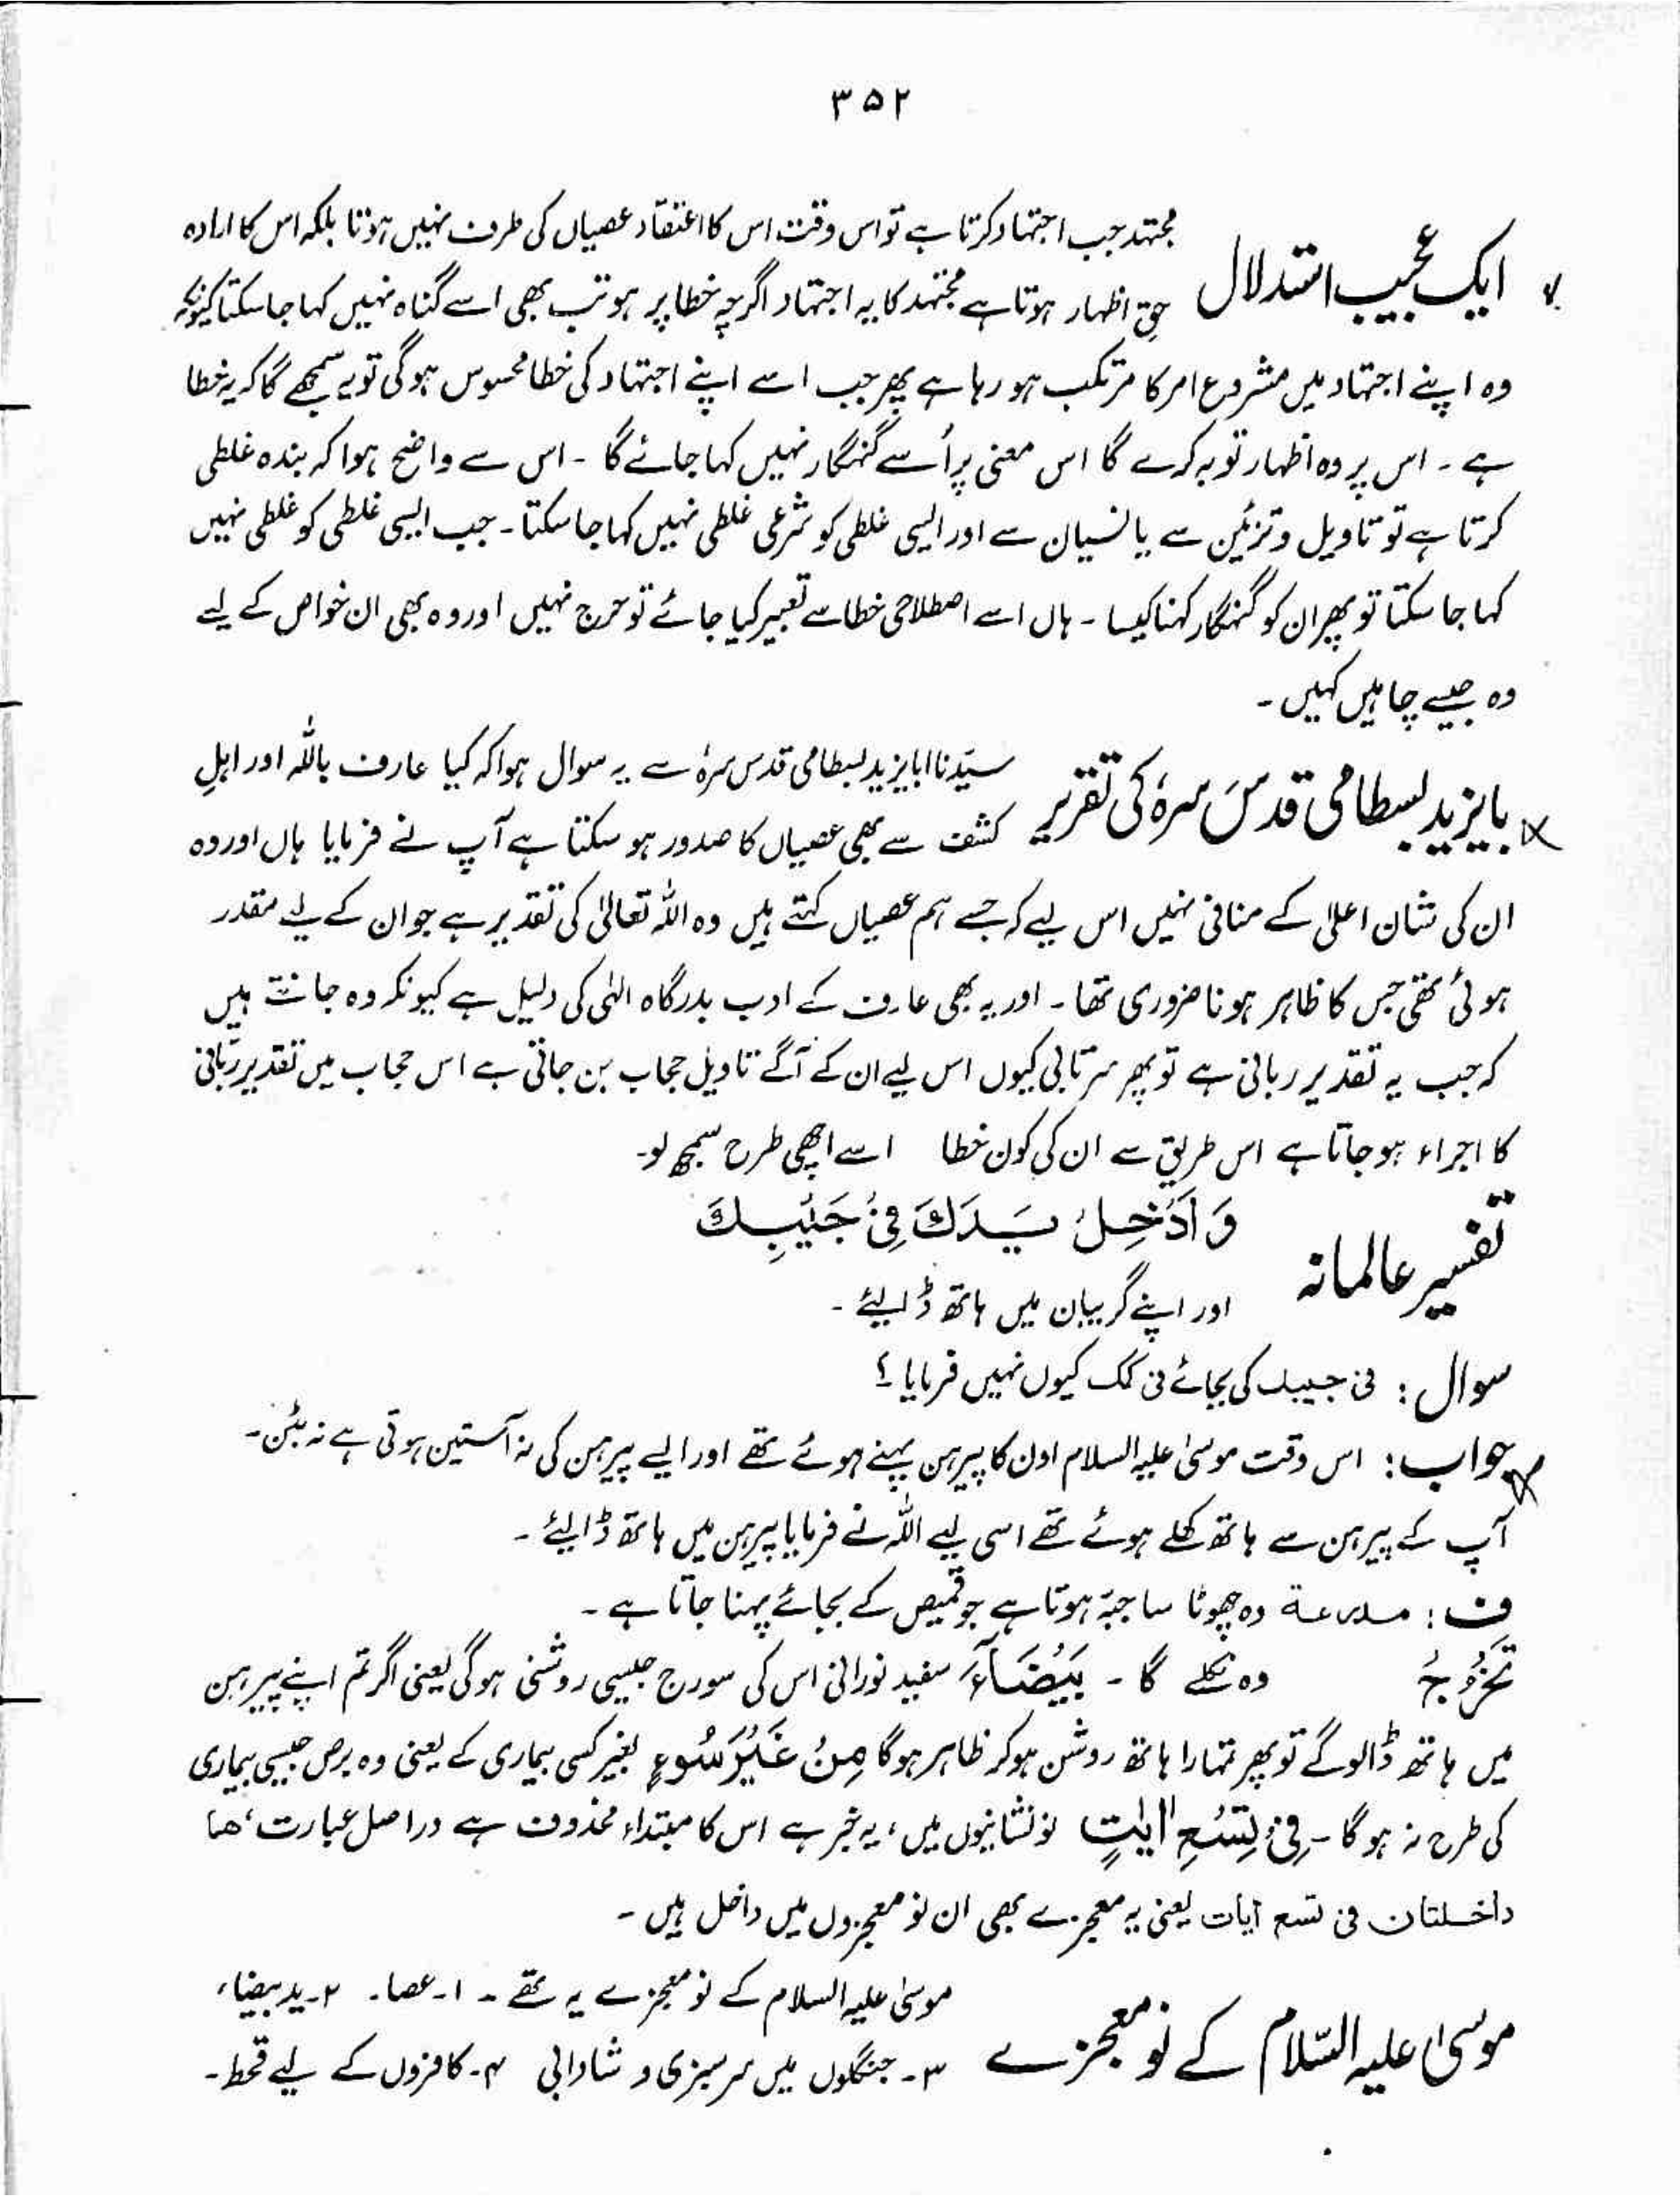 ۳۵۲
ایک عجیب استدلال
مجتہد جب اجتہاد کرتا ہے تو اس وقت اس کا اعتقاد عصیاں کی طرف نہیں ہوتا بلکہ اس کا ارادہ
حقِ اظہار ہوتا ہے مجتہد کا یہ اجتہاد اگرچہ خطا پر ہو تب بھی اسے گناہ نہیں کہا جا سکتا کیونکہ
وہ اپنے اجتہاد میں مشروع امر کا مرتکب ہو رہا ہے پھر جب اسے اپنے اجتہاد کی خطا محسوس ہوگی تو یہ سمجھے گا کہ یہ خطا
ہے ۔ اس پر وہ اظہار توبہ کرے گا اس معنی پر اُسے گنہگار نہیں کہا جائے گا ۔ اس سے واضح ہوا کہ بندہ غلطی
کرتا ہے تو تاویل و تزئین سے یا نسیان سے اور ایسی غلطی کو شرعی غلطی نہیں کہا جا سکتا ۔ جب ایسی غلطی کو غلطی نہیں
کہا جا سکتا تو پھر ان کو گنہگار کہنا کیسا ۔ ہاں اسے اصطلاحی خطا سے تعبیر کیا جائے تو حرج نہیں اور وہ بھی ان خواص کے لیے
وہ جیسے چاہیں کہیں ۔
بایزید بسطامی قدسَ سرہٗ کی تقریر
سیّدنا ابا یزید بسطامی قدس سرہٗ سے یہ سوال ہوا کہ کیا عارف باللہ اور اہلِ
کشف سے بھی عصیاں کا صدور ہو سکتا ہے آپ نے فرمایا ہاں اور وہ
ان کی شان اعلیٰ کے منافی نہیں اس لیے کہ جسے ہم عصیاں کہتے ہیں وہ اللہ تعالیٰ کی تقدیر ہے جو ان کے لیے مقدر
ہوئی تھی جس کا ظاہر ہونا ضروری تھا ۔ اور یہ بھی عارف کے ادب بدرگاہ الٰہی کی دلیل ہے کیونکہ وہ جانتے ہیں
کہ جب یہ تقدیر ربانی ہے تو پھر سرتابی کیوں اس لیے ان کے آگے تاویل حجاب بن جاتی ہے اس حجاب میں تقدیر ربّانی
کا اجراء ہو جاتا ہے اس طریق سے ان کی کون خطا اسے اچھی طرح سمجھ لو۔
تفسیر عالمانہ
وَ اَدْخِلْ یَدَكَ فِیْ جَیْبِكَ
اور اپنے گریبان میں ہاتھ ڈالیئے ۔
سوال : فی جیبك کی بجائے فی کمک کیوں نہیں فرمایا ؟
جواب : اس وقت موسیٰ علیہ السلام اون کا پیرہن پہنے ہوئے تھے اور ایسے پیرہن کی نہ آستین ہوتی ہے نہ بٹن۔
آپ کے پیرہن سے ہاتھ کھلے ہوئے تھے اسی لیے اللہ نے فرمایا پیرہن میں ہاتھ ڈالیئے ۔
ف : مدرعة وہ چھوٹا سا جبّہ ہوتا ہے جو قمیص کے بجائے پہنا جاتا ہے ۔
تَخْرُجْ وہ نکلے گا ۔ بَیْضَآءَ سفید نورانی اس کی سورج جیسی روشنی ہوگی یعنی اگر تم اپنے پیرہن
میں ہاتھ ڈالو گے تو پھر تمہارا ہاتھ روشن ہو کر ظاہر ہوگا مِنْ غَیْرِ سُوْءٍ بغیر کسی بیماری کے یعنی وہ برص جیسی بیماری
کی طرح نہ ہو گا ۔ فِیْ تِسْعِ اٰیٰتٍ نو نشانیوں میں، یہ خبر ہے اس کا مبتداء محذوف ہے دراصل عبارت، ھا
داخلتان فی تسع آیات یعنی یہ معجزے بھی ان نو معجزوں میں داخل ہیں ۔
موسیٰ علیہ السّلام کے نو معجزے
موسیٰ علیہ السلام کے نو معجزے یہ تھے ۔ ۱۔ عصا ۔ ۲۔ ید بیضاء
۳۔ جنگلوں میں سرسبزی و شادابی ۴۔ کافروں کے لیے قحط ۔